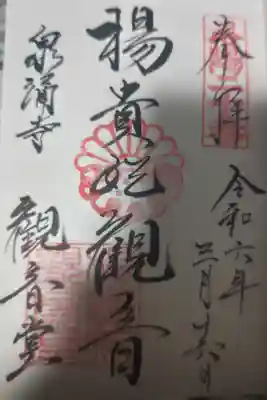 奉拝
令和六年
三月廿六日
楊貴妃観音
泉涌寺
觀音堂